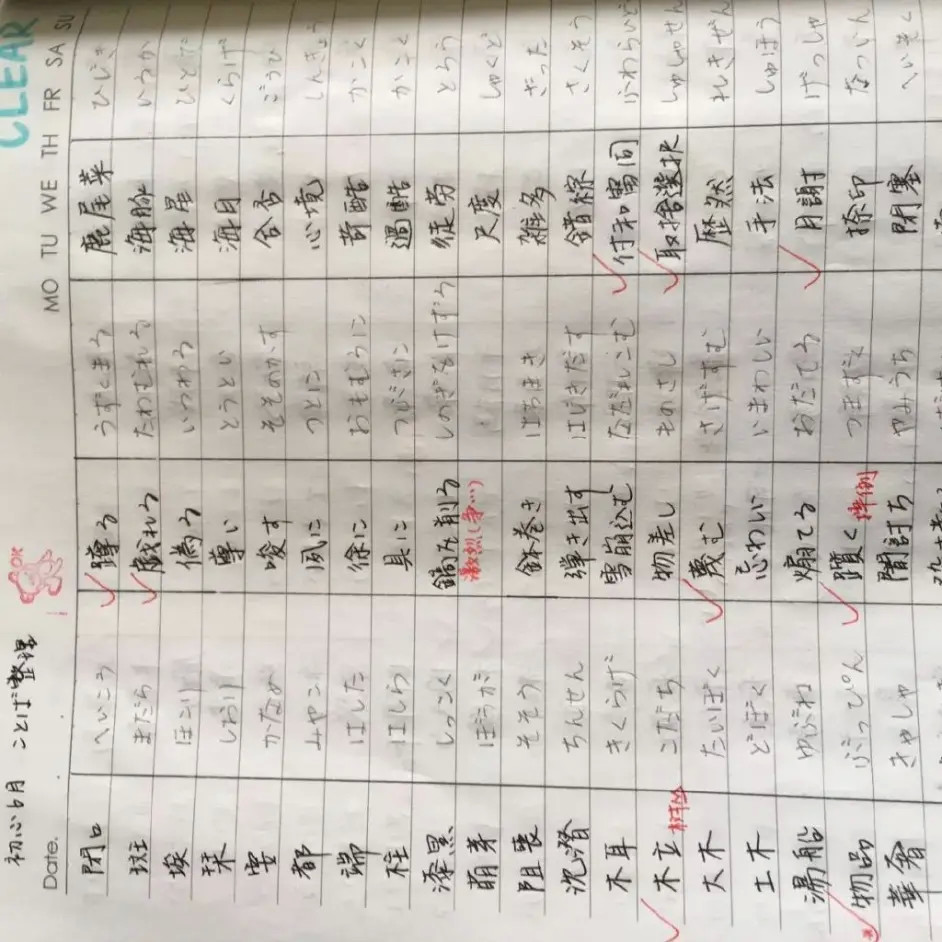 CLEAR
初心6月 ことば整理
Date. MO TU WE TH FR SA SU
閉口 へいこう 蹲る うずくまる 鹿尾菜 ひじき
斑 まだら 戯れる たわむれる 海豚 いるか
埃 ほこり 偽る いつわる 海星 ひとで
栞 しおり 尊い とうとい 海月 くらげ
要 かなめ 唆す そそのかす 合否 ごうひ
都 みやこ 夙に つとに 心境 しんきょう
端 はした 徐に おもむろに 苛酷 かこく
柱 はしら 具に つぶさに 過酷 かこく
漆黒 しっこく 鎬を削る しのぎをけずる 徒労 とろう
萌芽 ほうが 尺度 しゃくど
阻喪 そそう 鉢巻き はちまき 雑多 ざった
ちんせん 弾き出す はじきだす 錯綜 さくそう
木耳 きくらげ 雪崩込む なだれこむ 付和雷同 ふわらいど
木立 こだち 物差し ものさし 取捨選択 しゅしゃせん
大木 たいぼく 蔑む さげすむ 歴然 れきぜん
土木 どぼく 忌わしい いまわしい 手法 しゅほう
湯船 ゆぶね 煽てる おだてる 月謝 げっしゃ
物品 ぶっぴん 躓く つまずく 捺印 なついん
華奢 きゃしゃ 闇討ち やみうち 閉塞 へいそく